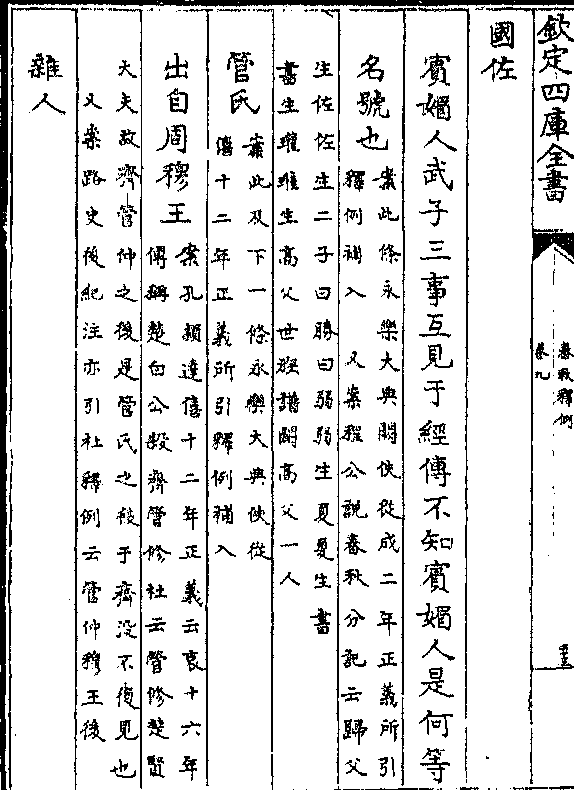 欽定四庫全書
春秋釋例
卷九
國佐
賓媚人武子三事互見于經傳不知賓媚人是何等
名號也
案此條永樂大典闕佚從成二年正義所引
釋例補入 又案程公說春秋分記云歸父
生佐佐生二子曰勝曰弱弱生夏夏生書
書生瓘瓘生高父世族譜闕高父一人
管氏
案此及下一條永樂大典佚從
僖十二年正義所引釋例補入
出自周穆王
案孔穎達僖十二年正義云哀十六年
傳稱楚白公殺齊管修杜云管修楚賢
大夫故齊管仲之後是管氏之後于齊没不復見也
又案路史後紀注亦引杜釋例云管仲穆王後
雜人